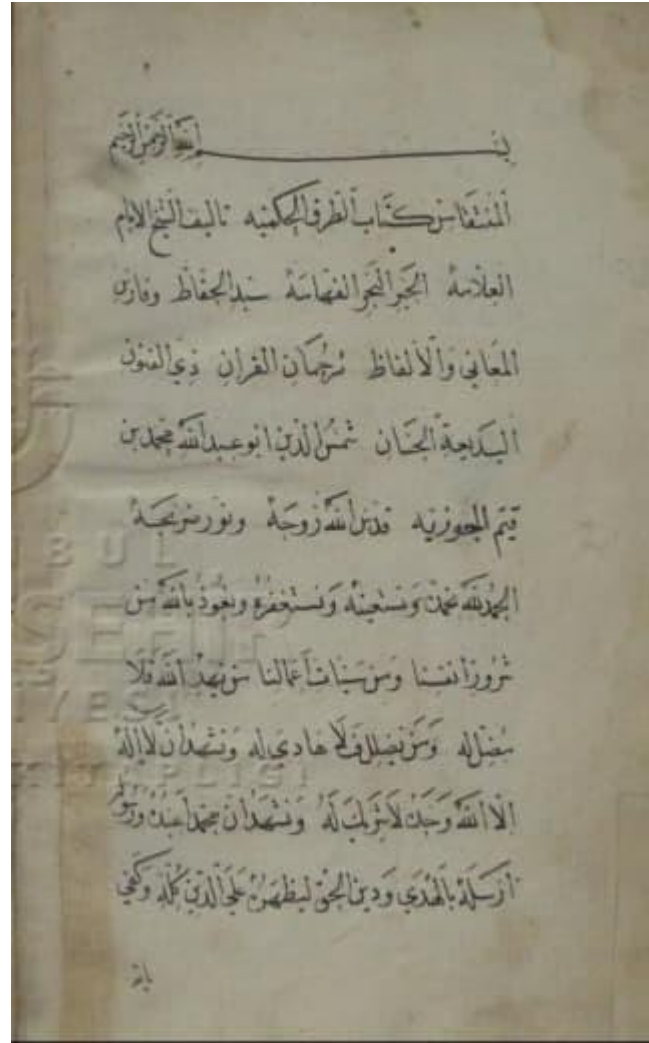 بسم الله الرحمن الرحيم
المنتقا من كتاب الطرق الحكميه تاليف الشيخ الامام
العلامة الحبر البحر الفهامة سيد الحفاظ وفارس
المعاني والألفاظ ترجمان القرآن ذي الفنون
البديعة الحسان شمس الدين ابو عبد الله محمد بن
قيم الجوزيه قدس الله روحه ونور ضريحه
الحمد لله نحمده ونستعينه ونستغفره ونعوذ بالله من
شرور انفسنا ومن سيئات أعمالنا من يهد الله فلا
مضل له ومن يضلل فلا هادي له ونشهد ان لا إله
الا الله وحده لا شريك له ونشهد ان محمدا عبده ورسوله
ارسله بالهدي ودين الحق ليظهره علي الدين كله وكفي
بالله